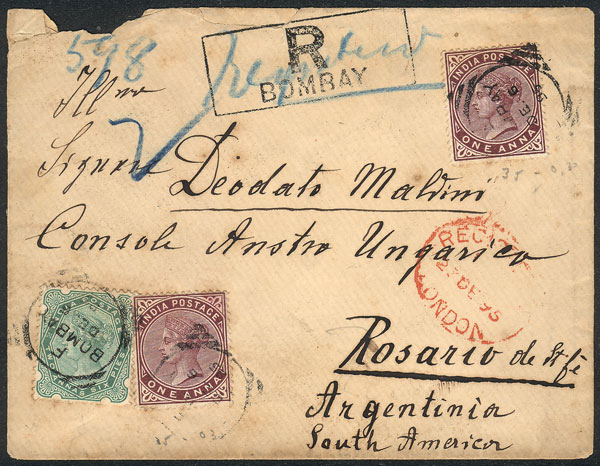 598 Registered
R
BOMBAY
INDIA POSTAGE
ONE ANNA
Illmo
Signore
Deodato Maldini
Console Austro Ungarico
REG
27 DE 95
LONDON
Rosario de St fé
Argentinia
South America
BOMBA
DE
INDIA POSTAGE
ONE ANNA